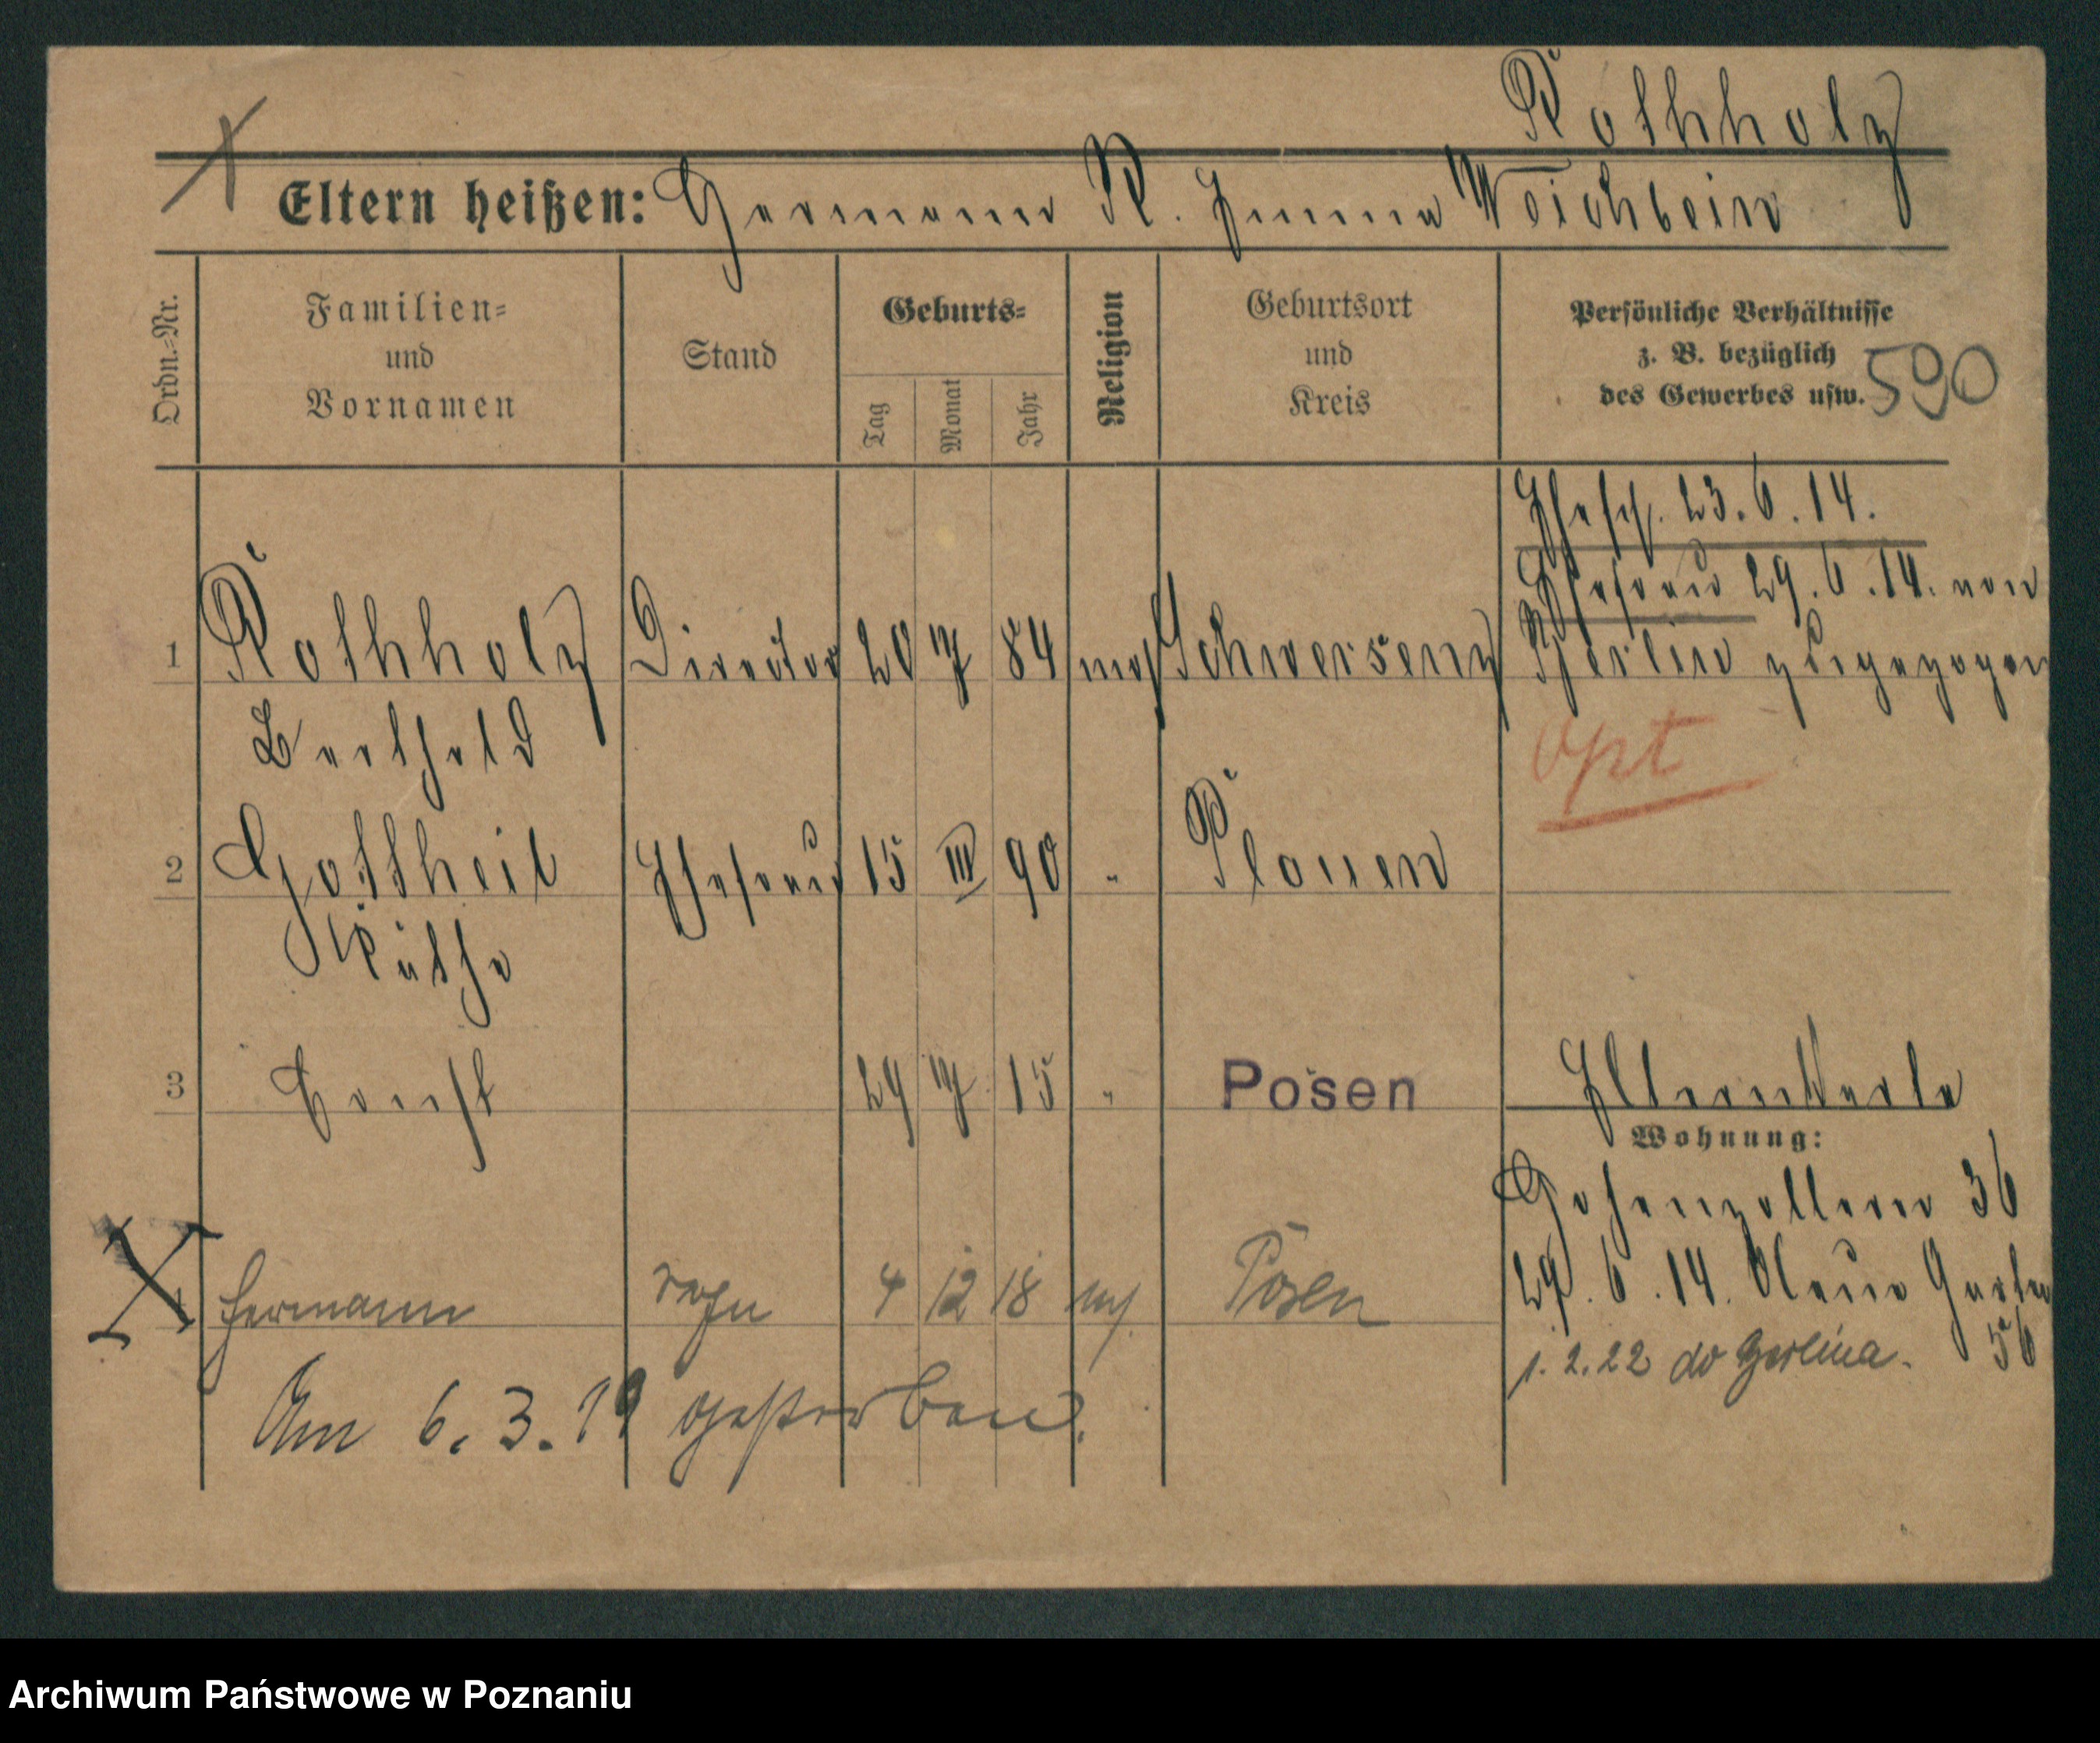 Rothholz
Eltern heißen: Hermann R. Emma Weichbein
Ordn.-Nr.
Familien-
und
Vornamen
Stand
Geburts-
Tag
Monat
Jahr
Religion
Geburtsort
und
Kreis
Persönliche Verhältnisse
z. B. bezüglich
des Gewerbes usw.
590
Ehesch. 23.6.14.
Ehefrau 29.6.14. von
Berlin zugezogen
1 Rothholz Director 20 IV 84 mos Schwersenz
Berthold
opt
2 Gottheil Ehefrau 15 III 90 " Plauen
Käthe
3 Ernst 29 IV 15 " Posen
Wohnung:
Hohenzollern 36
29.6.14. Neue Garten
56
4 Hermann 4 12 18 Posen
1.2.22 do Berlina.
Am 6.3.19 gestorben.
Archiwum Państwowe w Poznaniu